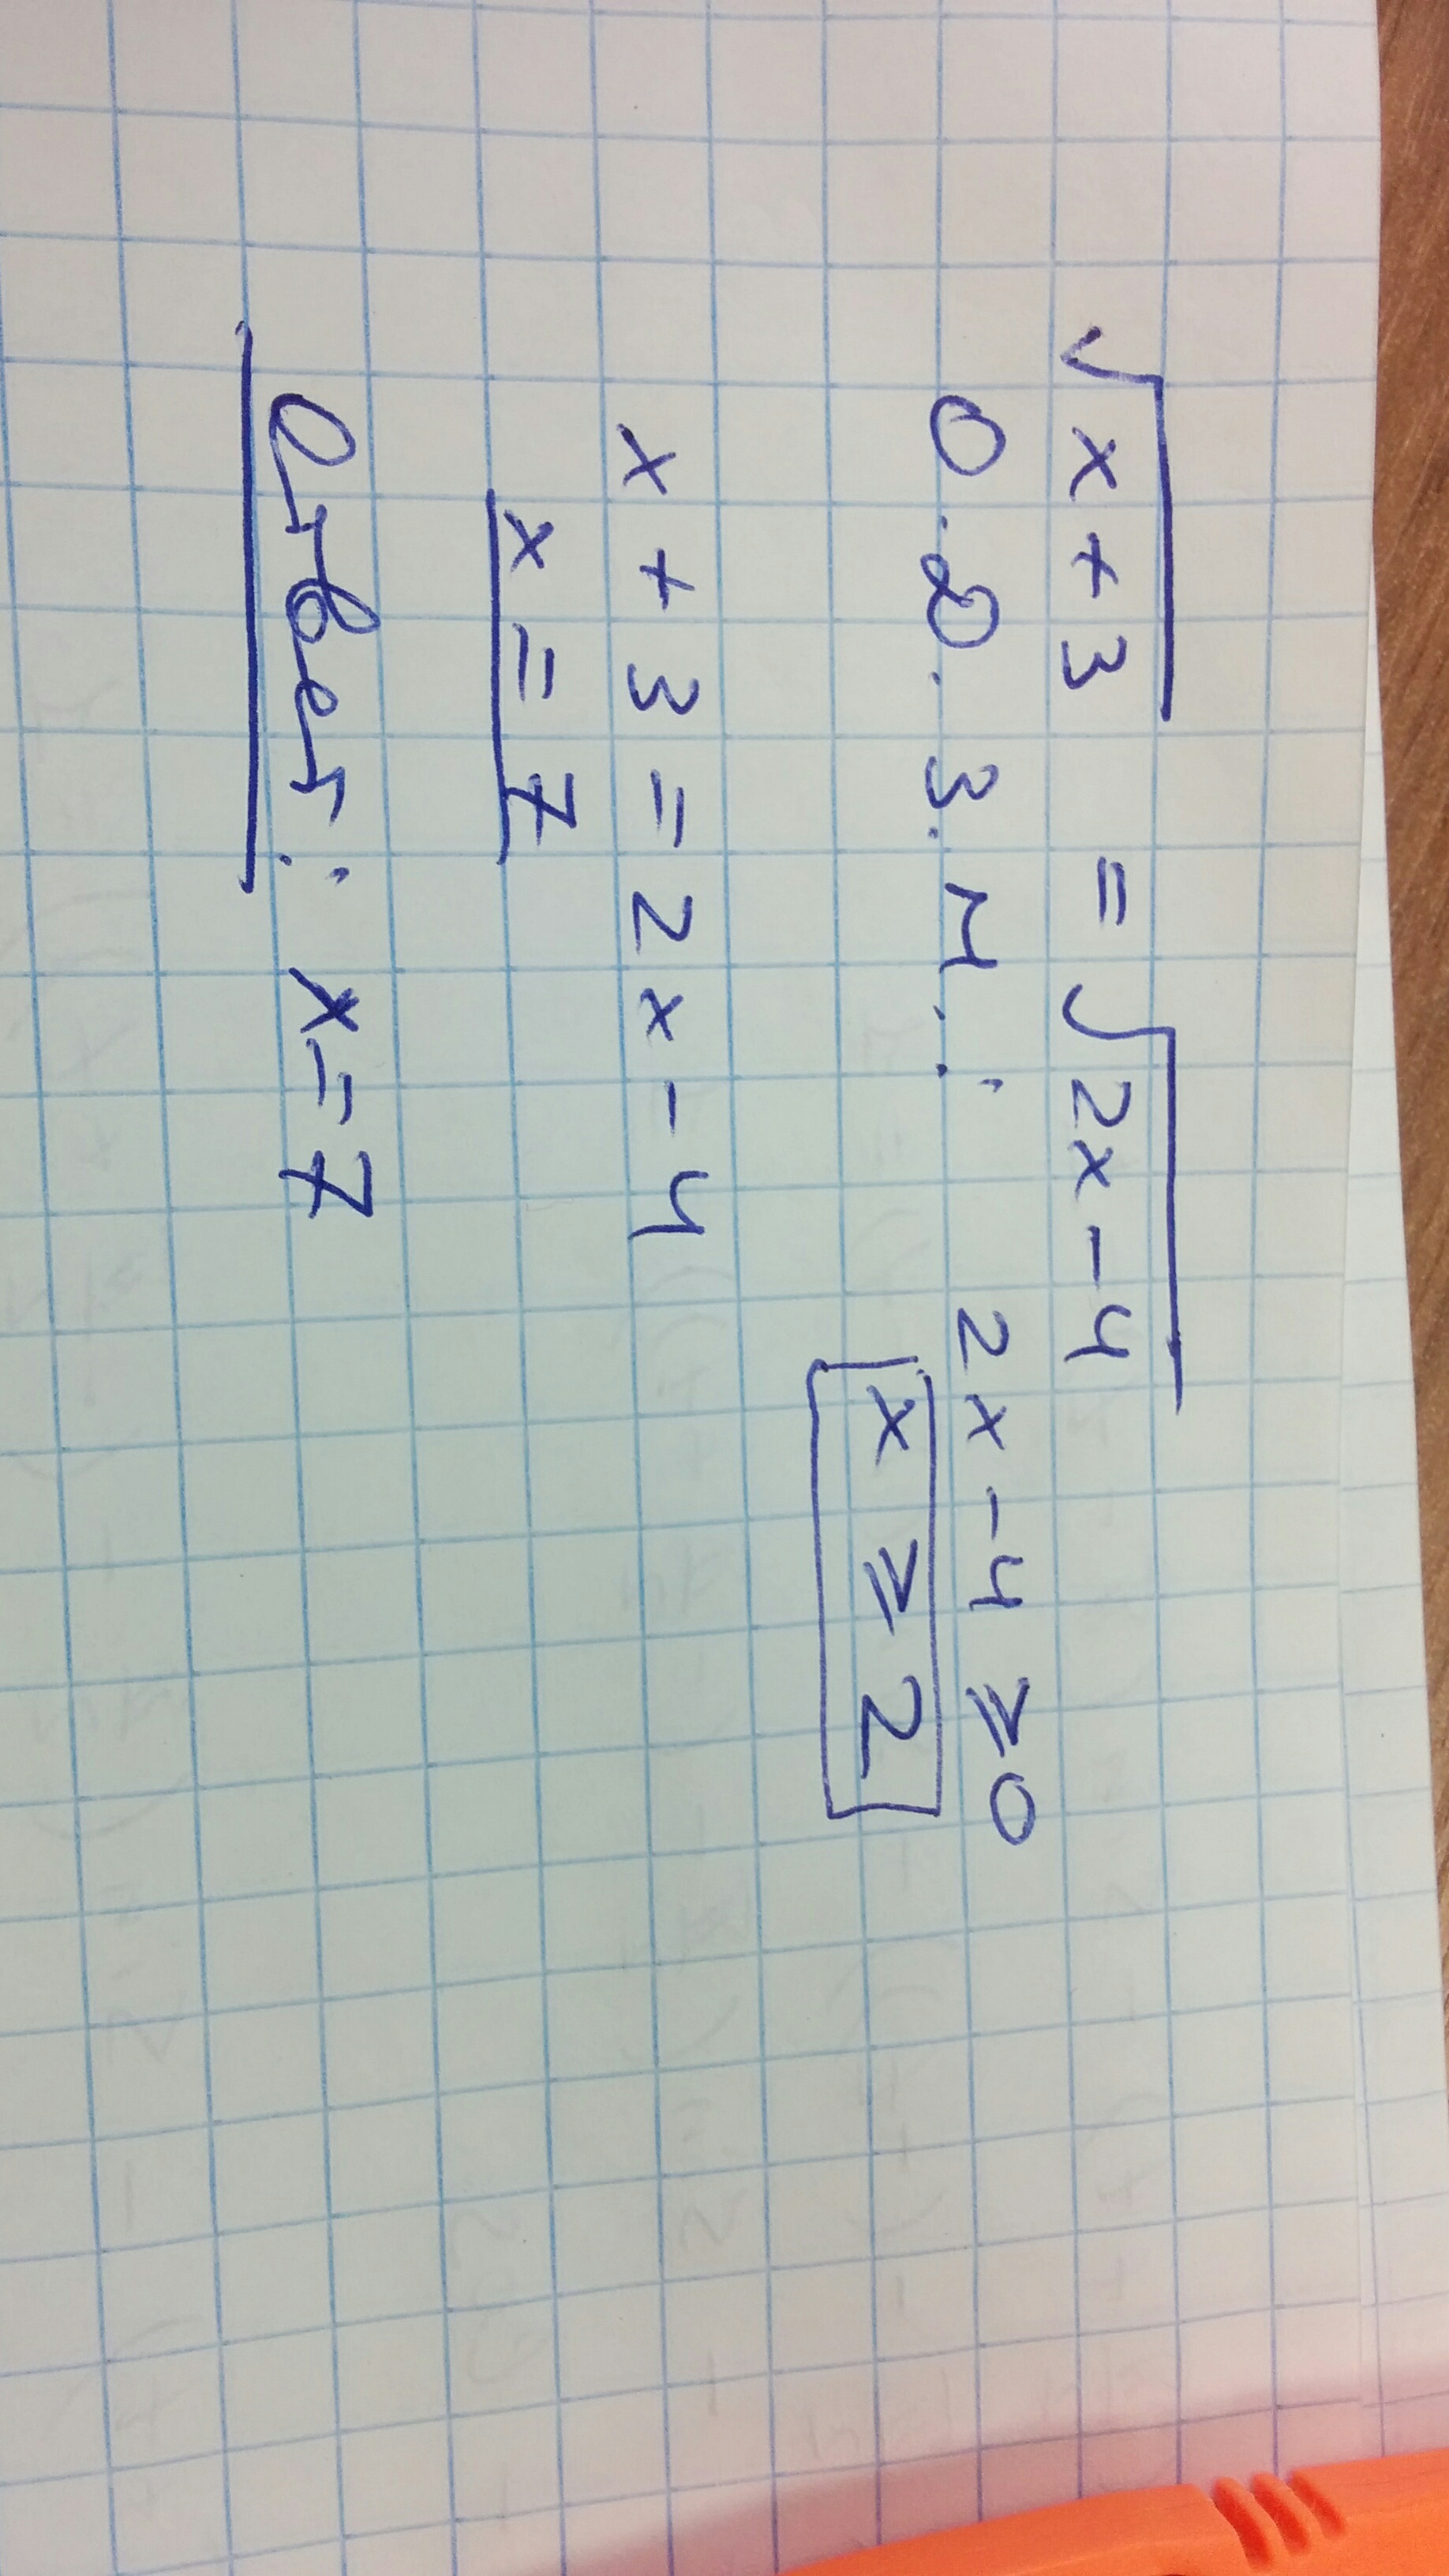 √x+3 = √2x-4
О.Д.З.М.: 2x-4 ≥ 0
x ≥ 2
x+3=2x-4
x=7
Ответ: x=7